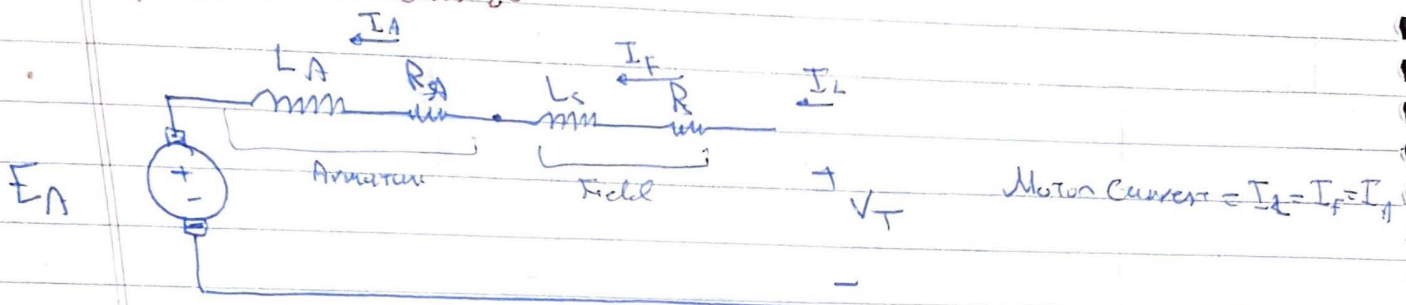 I_A
L_A R_A I_F I_L
L_s R_s
+
-
Armature Field
E_A + V_T - Motor Current = I_L = I_F = I_A